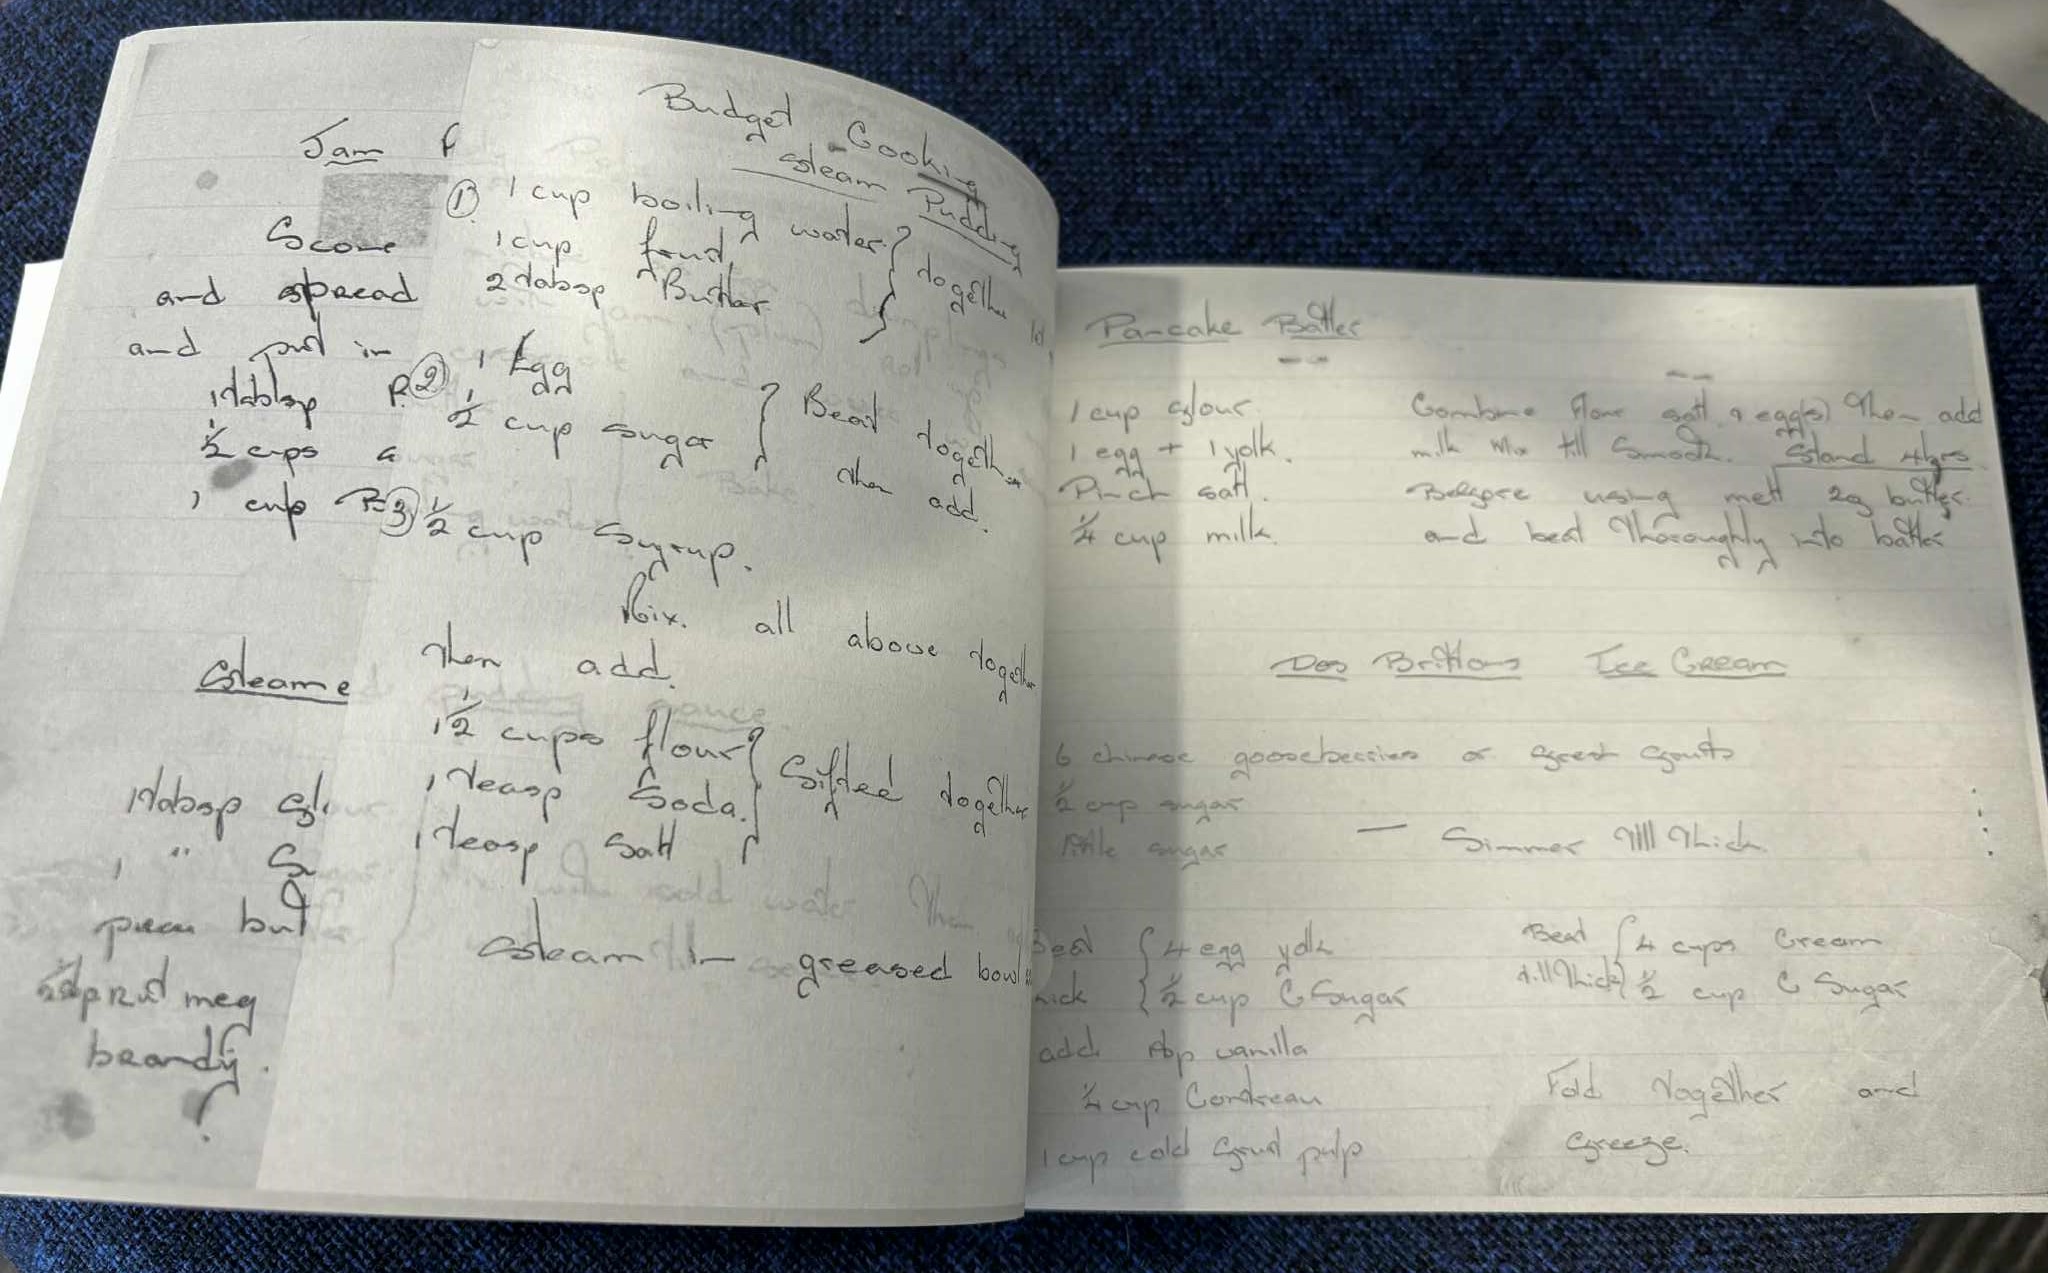 Jam
Scone
and spread
and put in
1 tablsp
1/2 cups
1 cup
Steame
1 tabsp
1 "
piece but
brandy.
Budget Cooking
Steam Pudding
① 1 cup boiling water
1 cup fruit
2 tabsp Butter
together
② 1 Egg
1/2 cup sugar
Beat together
then add.
③ 1/2 cup Syrup.
Mix. all above together
then add.
1 1/2 cups flour
1 teasp Soda.
1 teasp Salt
Sifted together
Steam in greased bowl
Pancake Batter
1 cup flour.
1 egg + 1 yolk.
Pinch salt.
1/4 cup milk.
Combine flour salt & egg(s) Then add
milk mix till Smooth. Stand 4hrs
Before using melt 2g butter.
and beat thoroughly into batter
Des Brittons Ice Cream
6 chinese gooseberries or fresh fruits
1/2 cup sugar
little sugar
— Simmer till thick.
Beat
thick
4 egg yolk
1/2 cup C Sugar
add tsp vanilla
1/4 cup Contreau
1 cup cold fruit pulp
Beat
till thick
4 cups Cream
1/2 cup C Sugar
Fold together and
freeze.